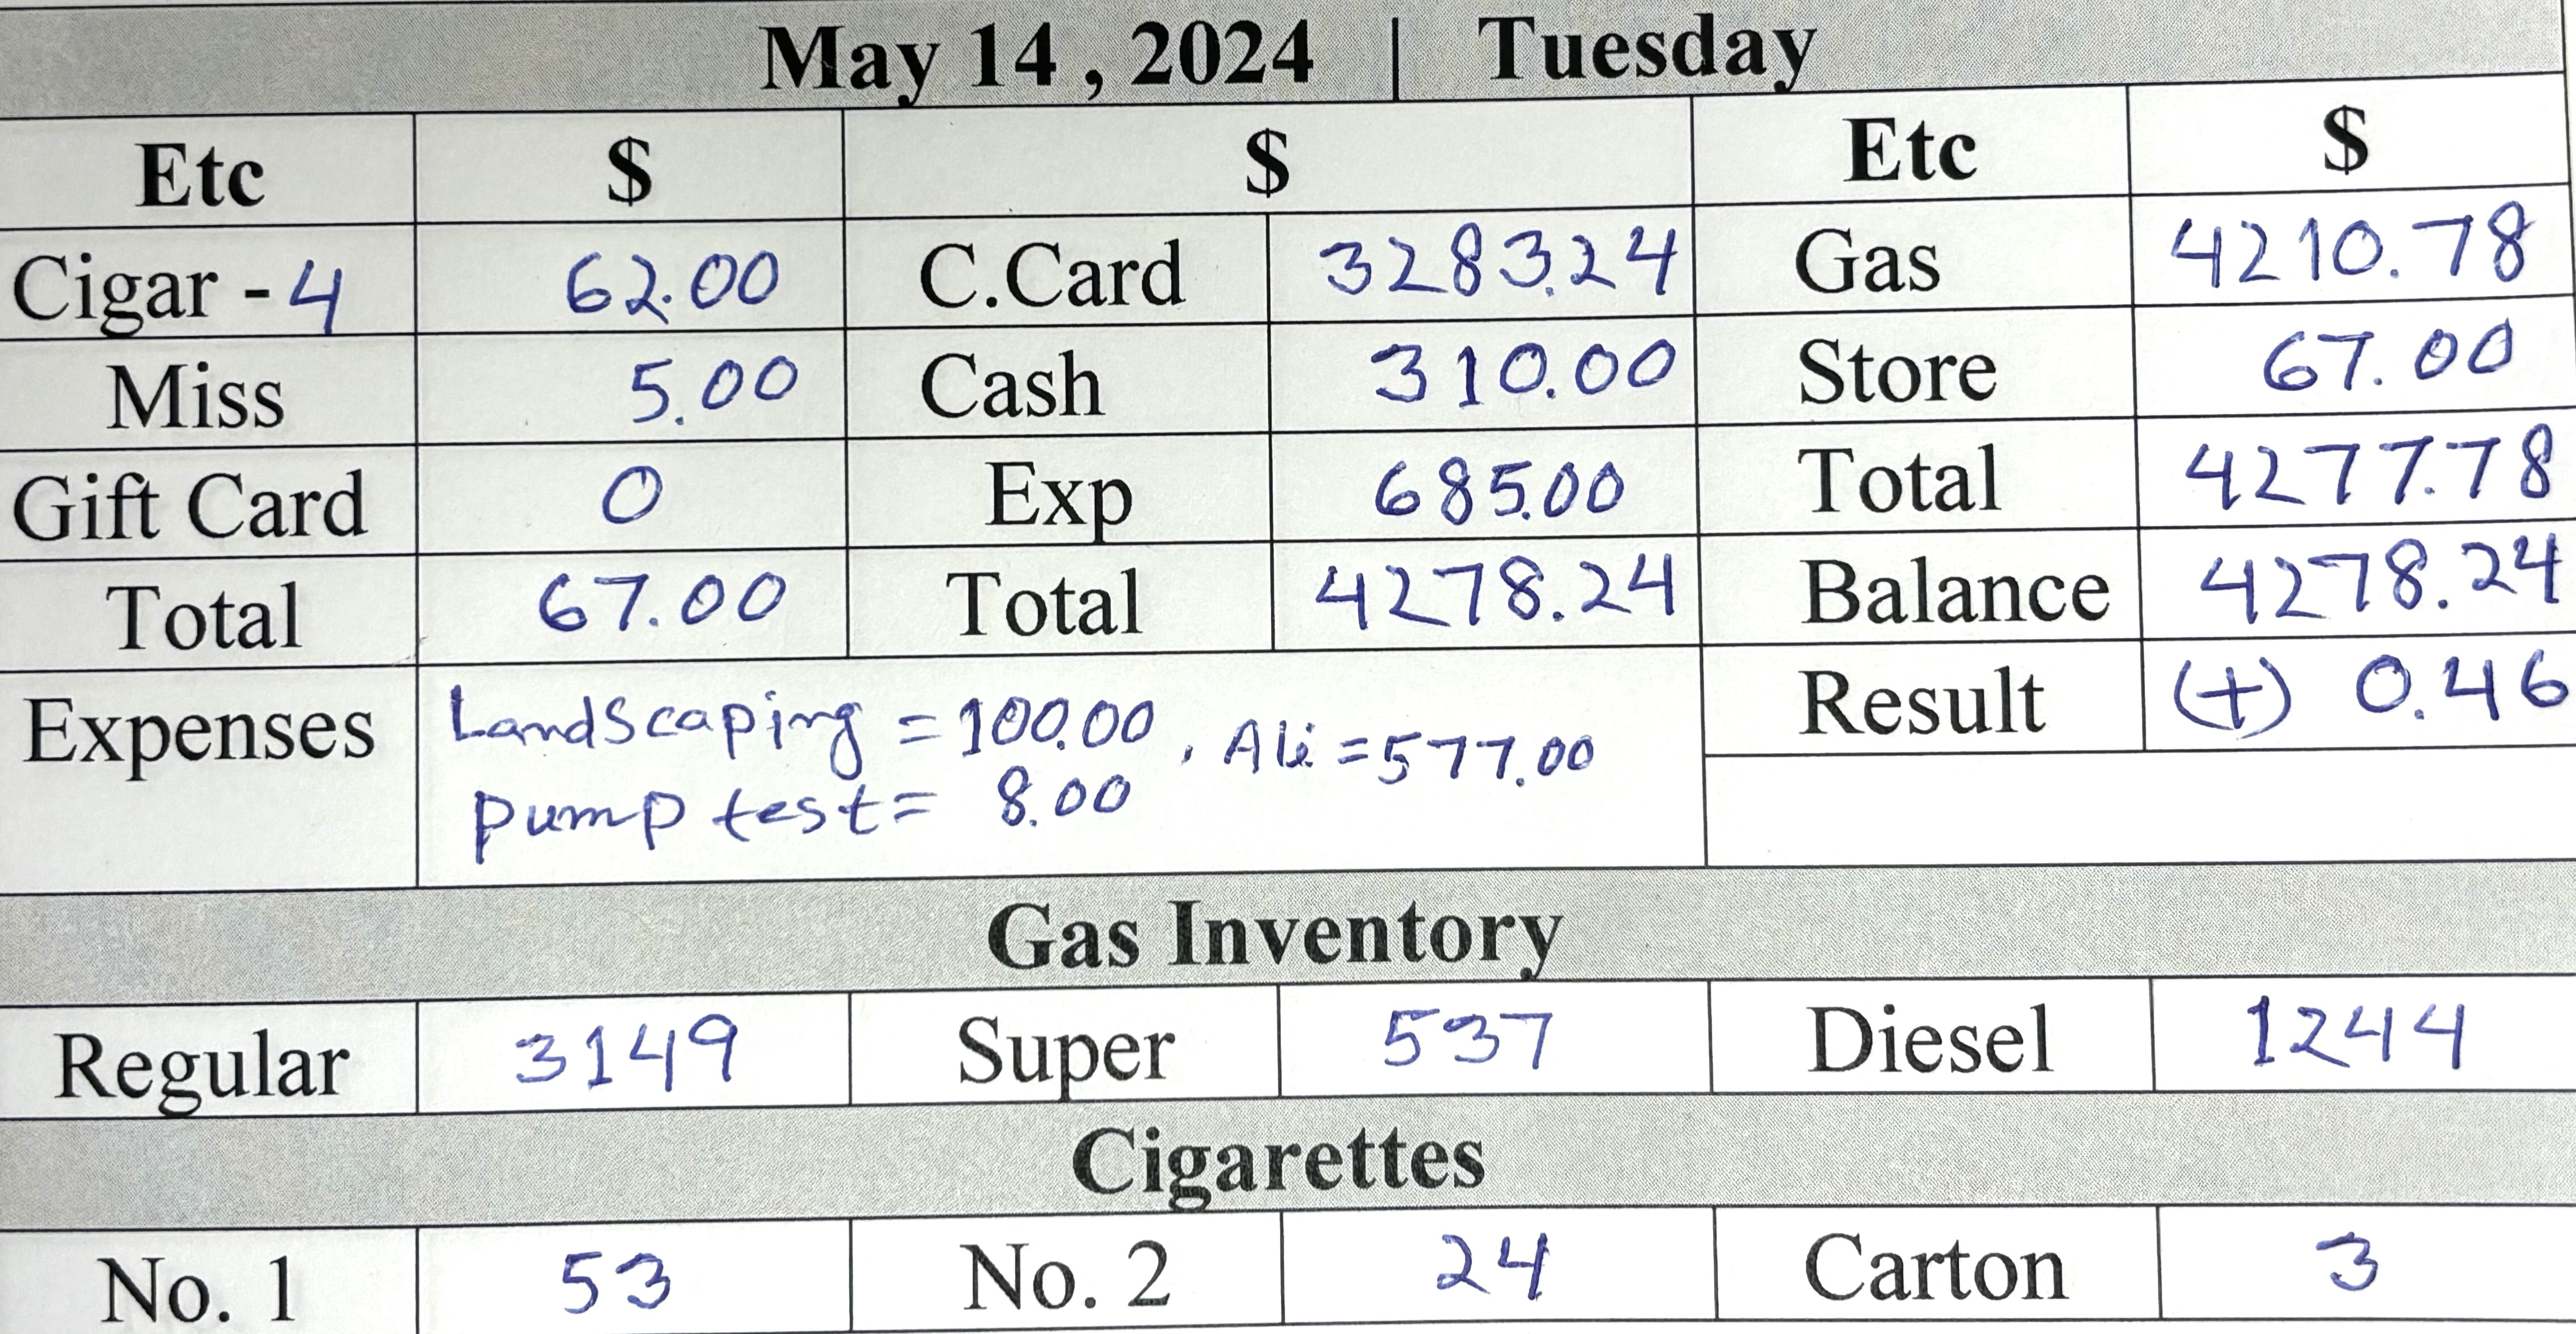 May 14 , 2024 | Tuesday
Etc $ $ Etc $
Cigar - 4 62.00 C.Card 3283.24 Gas 4210.78
Miss 5.00 Cash 310.00 Store 67.00
Gift Card 0 Exp 685.00 Total 4277.78
Total 67.00 Total 4278.24 Balance 4278.24
Expenses Landscaping = 100.00 , Ali = 577.00 Result (+) 0.46
pump test = 8.00
Gas Inventory
Regular 3149 Super 537 Diesel 1244
Cigarettes
No. 1 53 No. 2 24 Carton 3